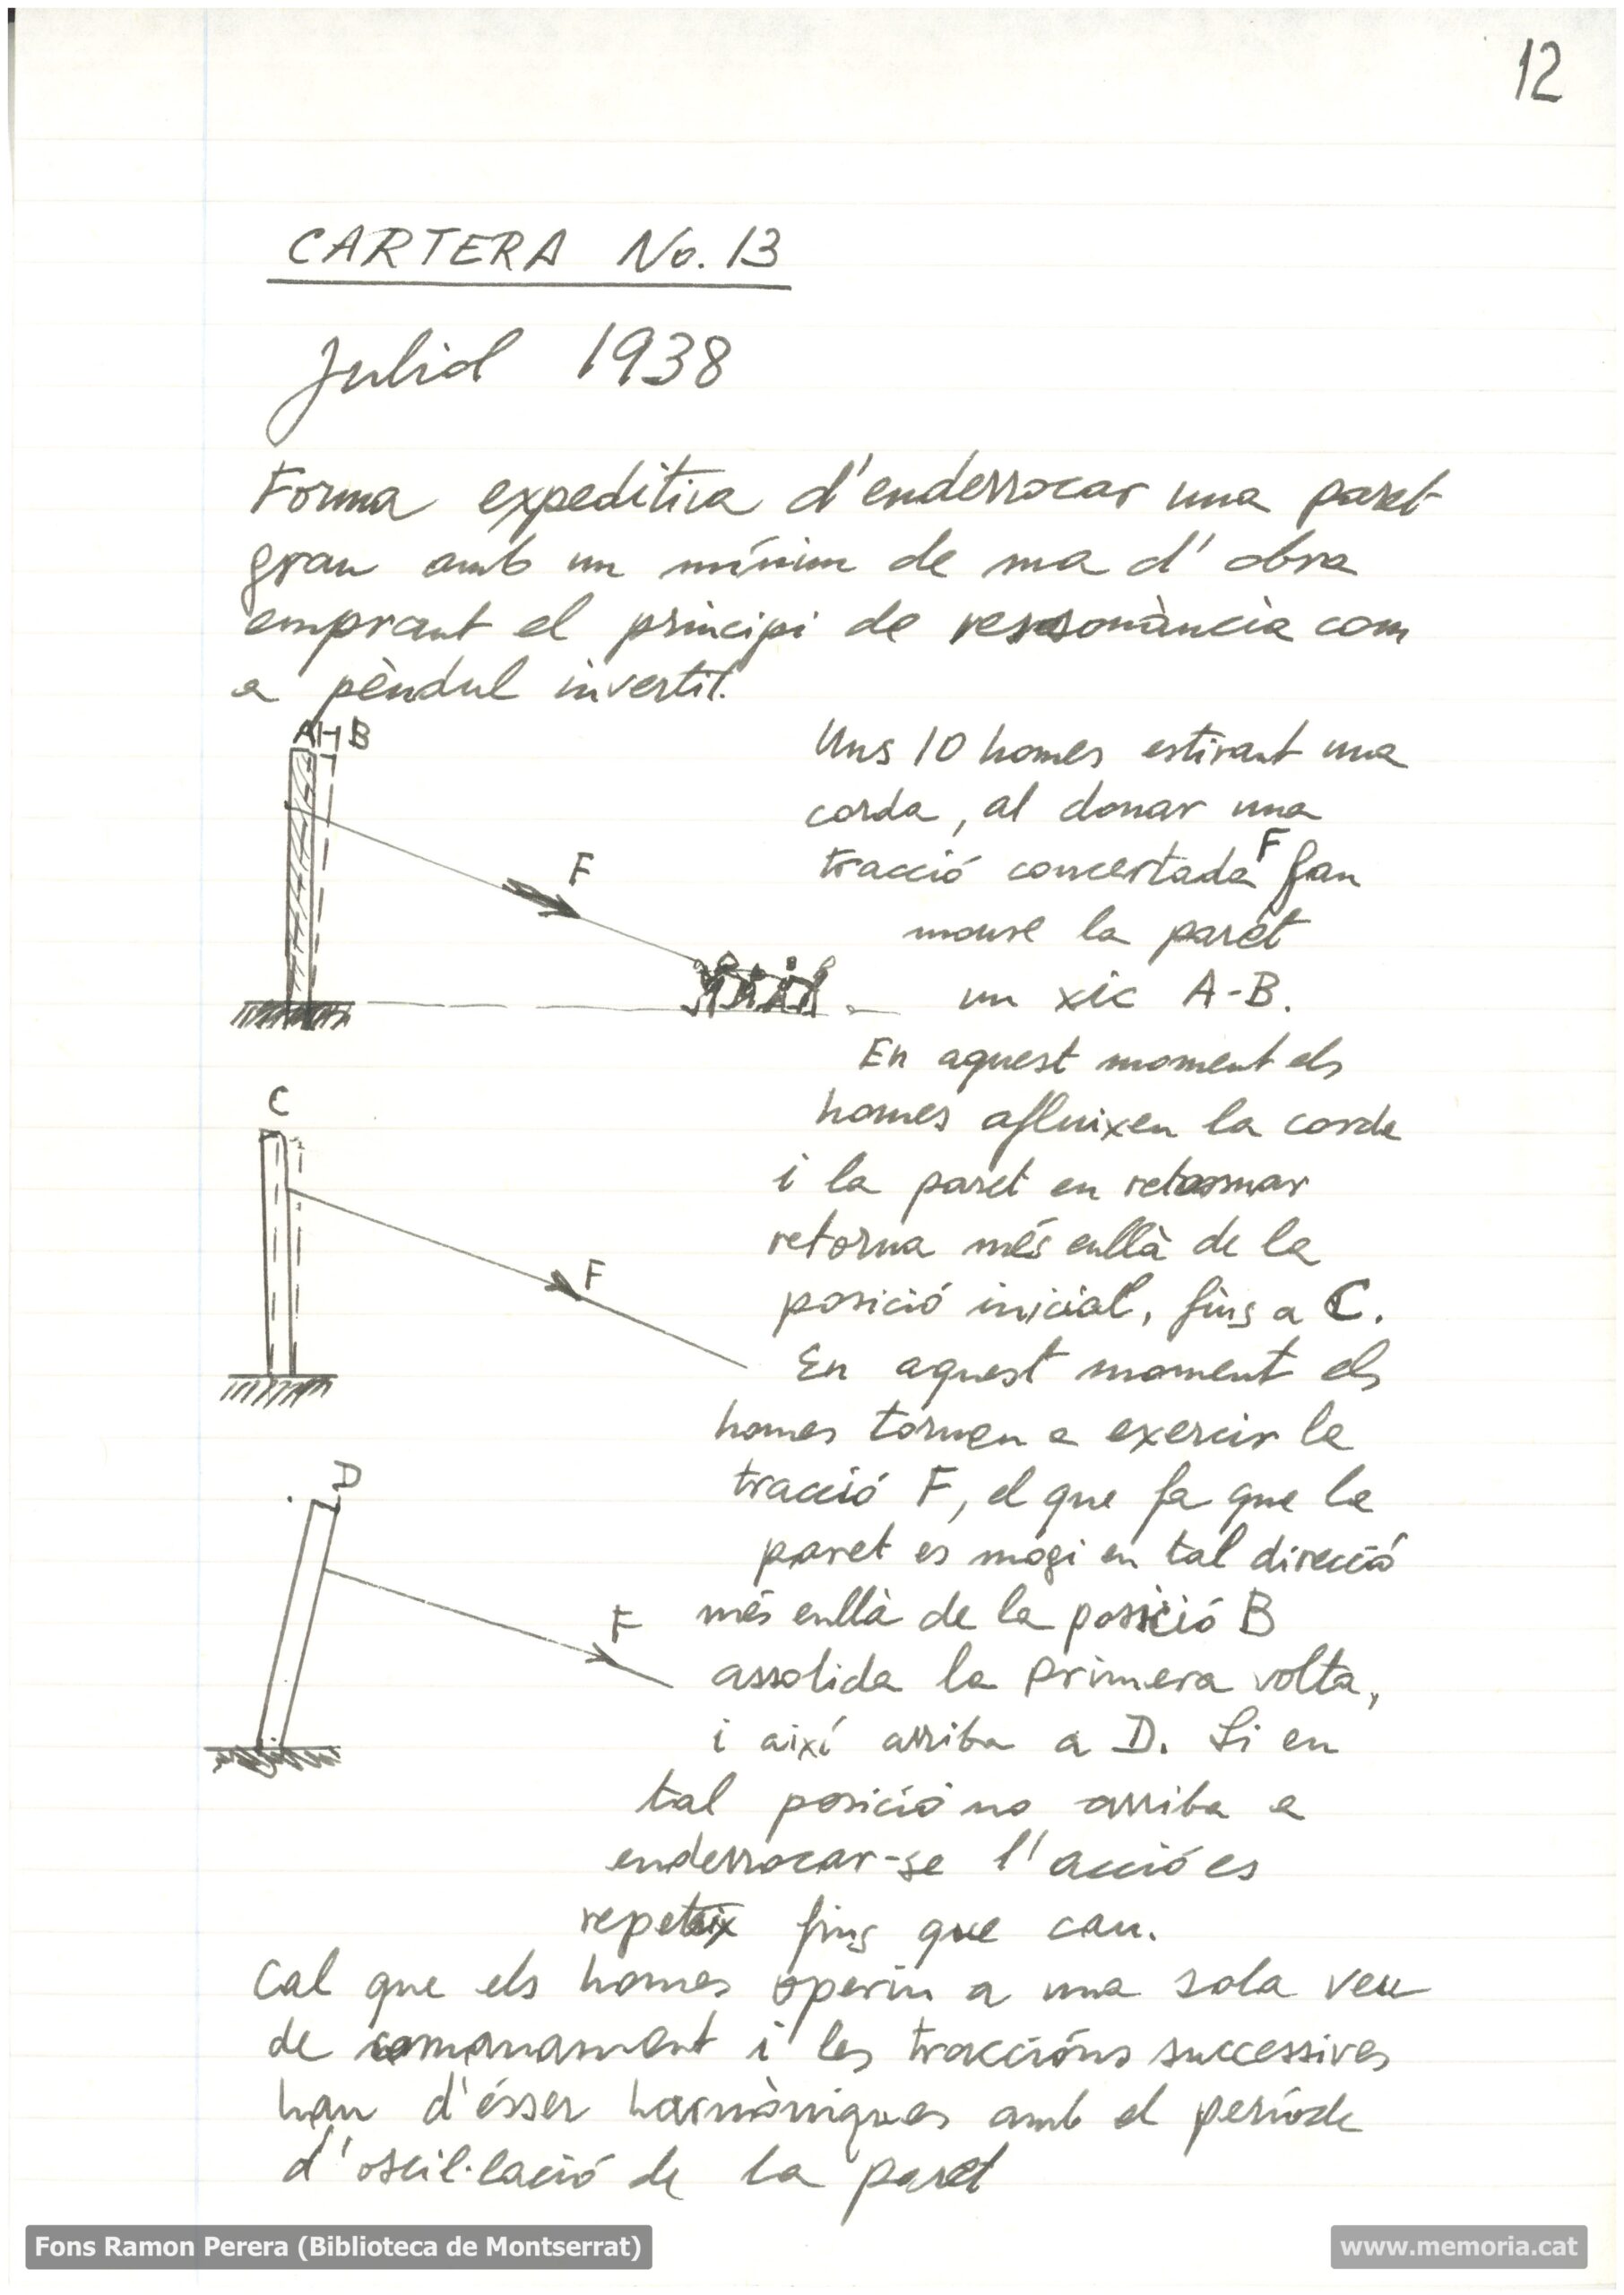 12
CARTERA No. 13
Juliol 1938
Forma expeditiva d'enderrocar una paret
gran amb un mínim de ma d'obra
emprant el principi de ressonància com
a pèndul invertit.
A B
Uns 10 homes estirant una
corda, al donar una
F
tracció concertada F fan
moure la paret
un xic A-B.
En aquest moment els
C
homes afluixen la corda
i la paret en retornar
retorna més enllà de la
F
posició inicial, fins a C.
En aquest moment els
homes tornen a exercir la
D
tracció F, el que fa que la
paret es mogi en tal direcció
F
més enllà de la posició B
assolida la primera volta,
i així arriba a D. Si en
tal posició no arriba a
enderrocar-se l'acció es
repeteix fins que cau.
Cal que els homes operin a una sola veu
de comanament i les traccións successives
han d'ésser harmòniques amb el període
d'oscil·lació de la paret
Fons Ramon Perera (Biblioteca de Montserrat)
www.memoria.cat